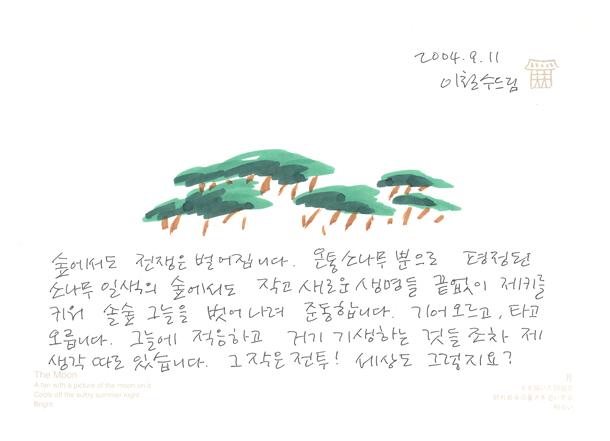 2004.9.11
이철수드림
숲에서도 전쟁은 벌어집니다. 온통 소나무뿐으로 평정된
소나무 일색의 숲에서도 작고 새로운 생명들 끝없이 제키를
키워 솔숲 그늘을 벗어나려 준동합니다. 기어오르고, 타고
오릅니다. 그늘에 적응하고 거기 기생하는 것들 조차 제
생각 따로 있습니다. 그 작은 전투! 세상도 그렇지요?
The Moon
A fan with a picture of the moon on it
Cools off the sultry summer night
Bright
月